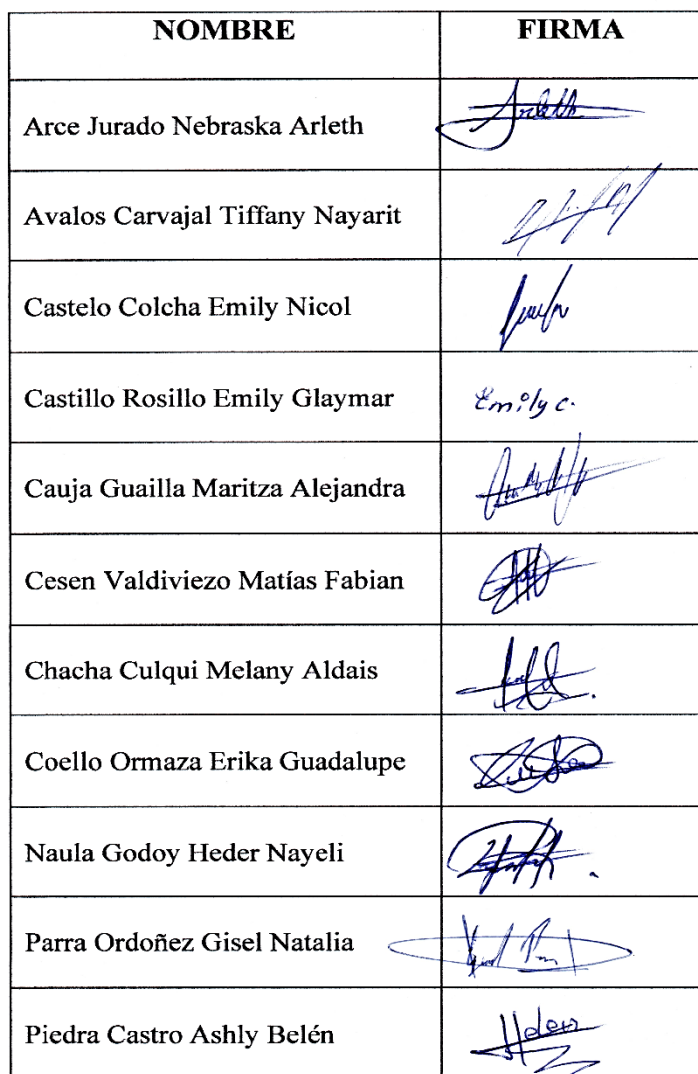 NOMBRE FIRMA
Arce Jurado Nebraska Arleth Arleth
Avalos Carvajal Tiffany Nayarit
Castelo Colcha Emily Nicol
Castillo Rosillo Emily Glaymar Emily c.
Cauja Guailla Maritza Alejandra
Cesen Valdiviezo Matías Fabian
Chacha Culqui Melany Aldais
Coello Ormaza Erika Guadalupe
Naula Godoy Heder Nayeli
Parra Ordoñez Gisel Natalia
Piedra Castro Ashly Belén